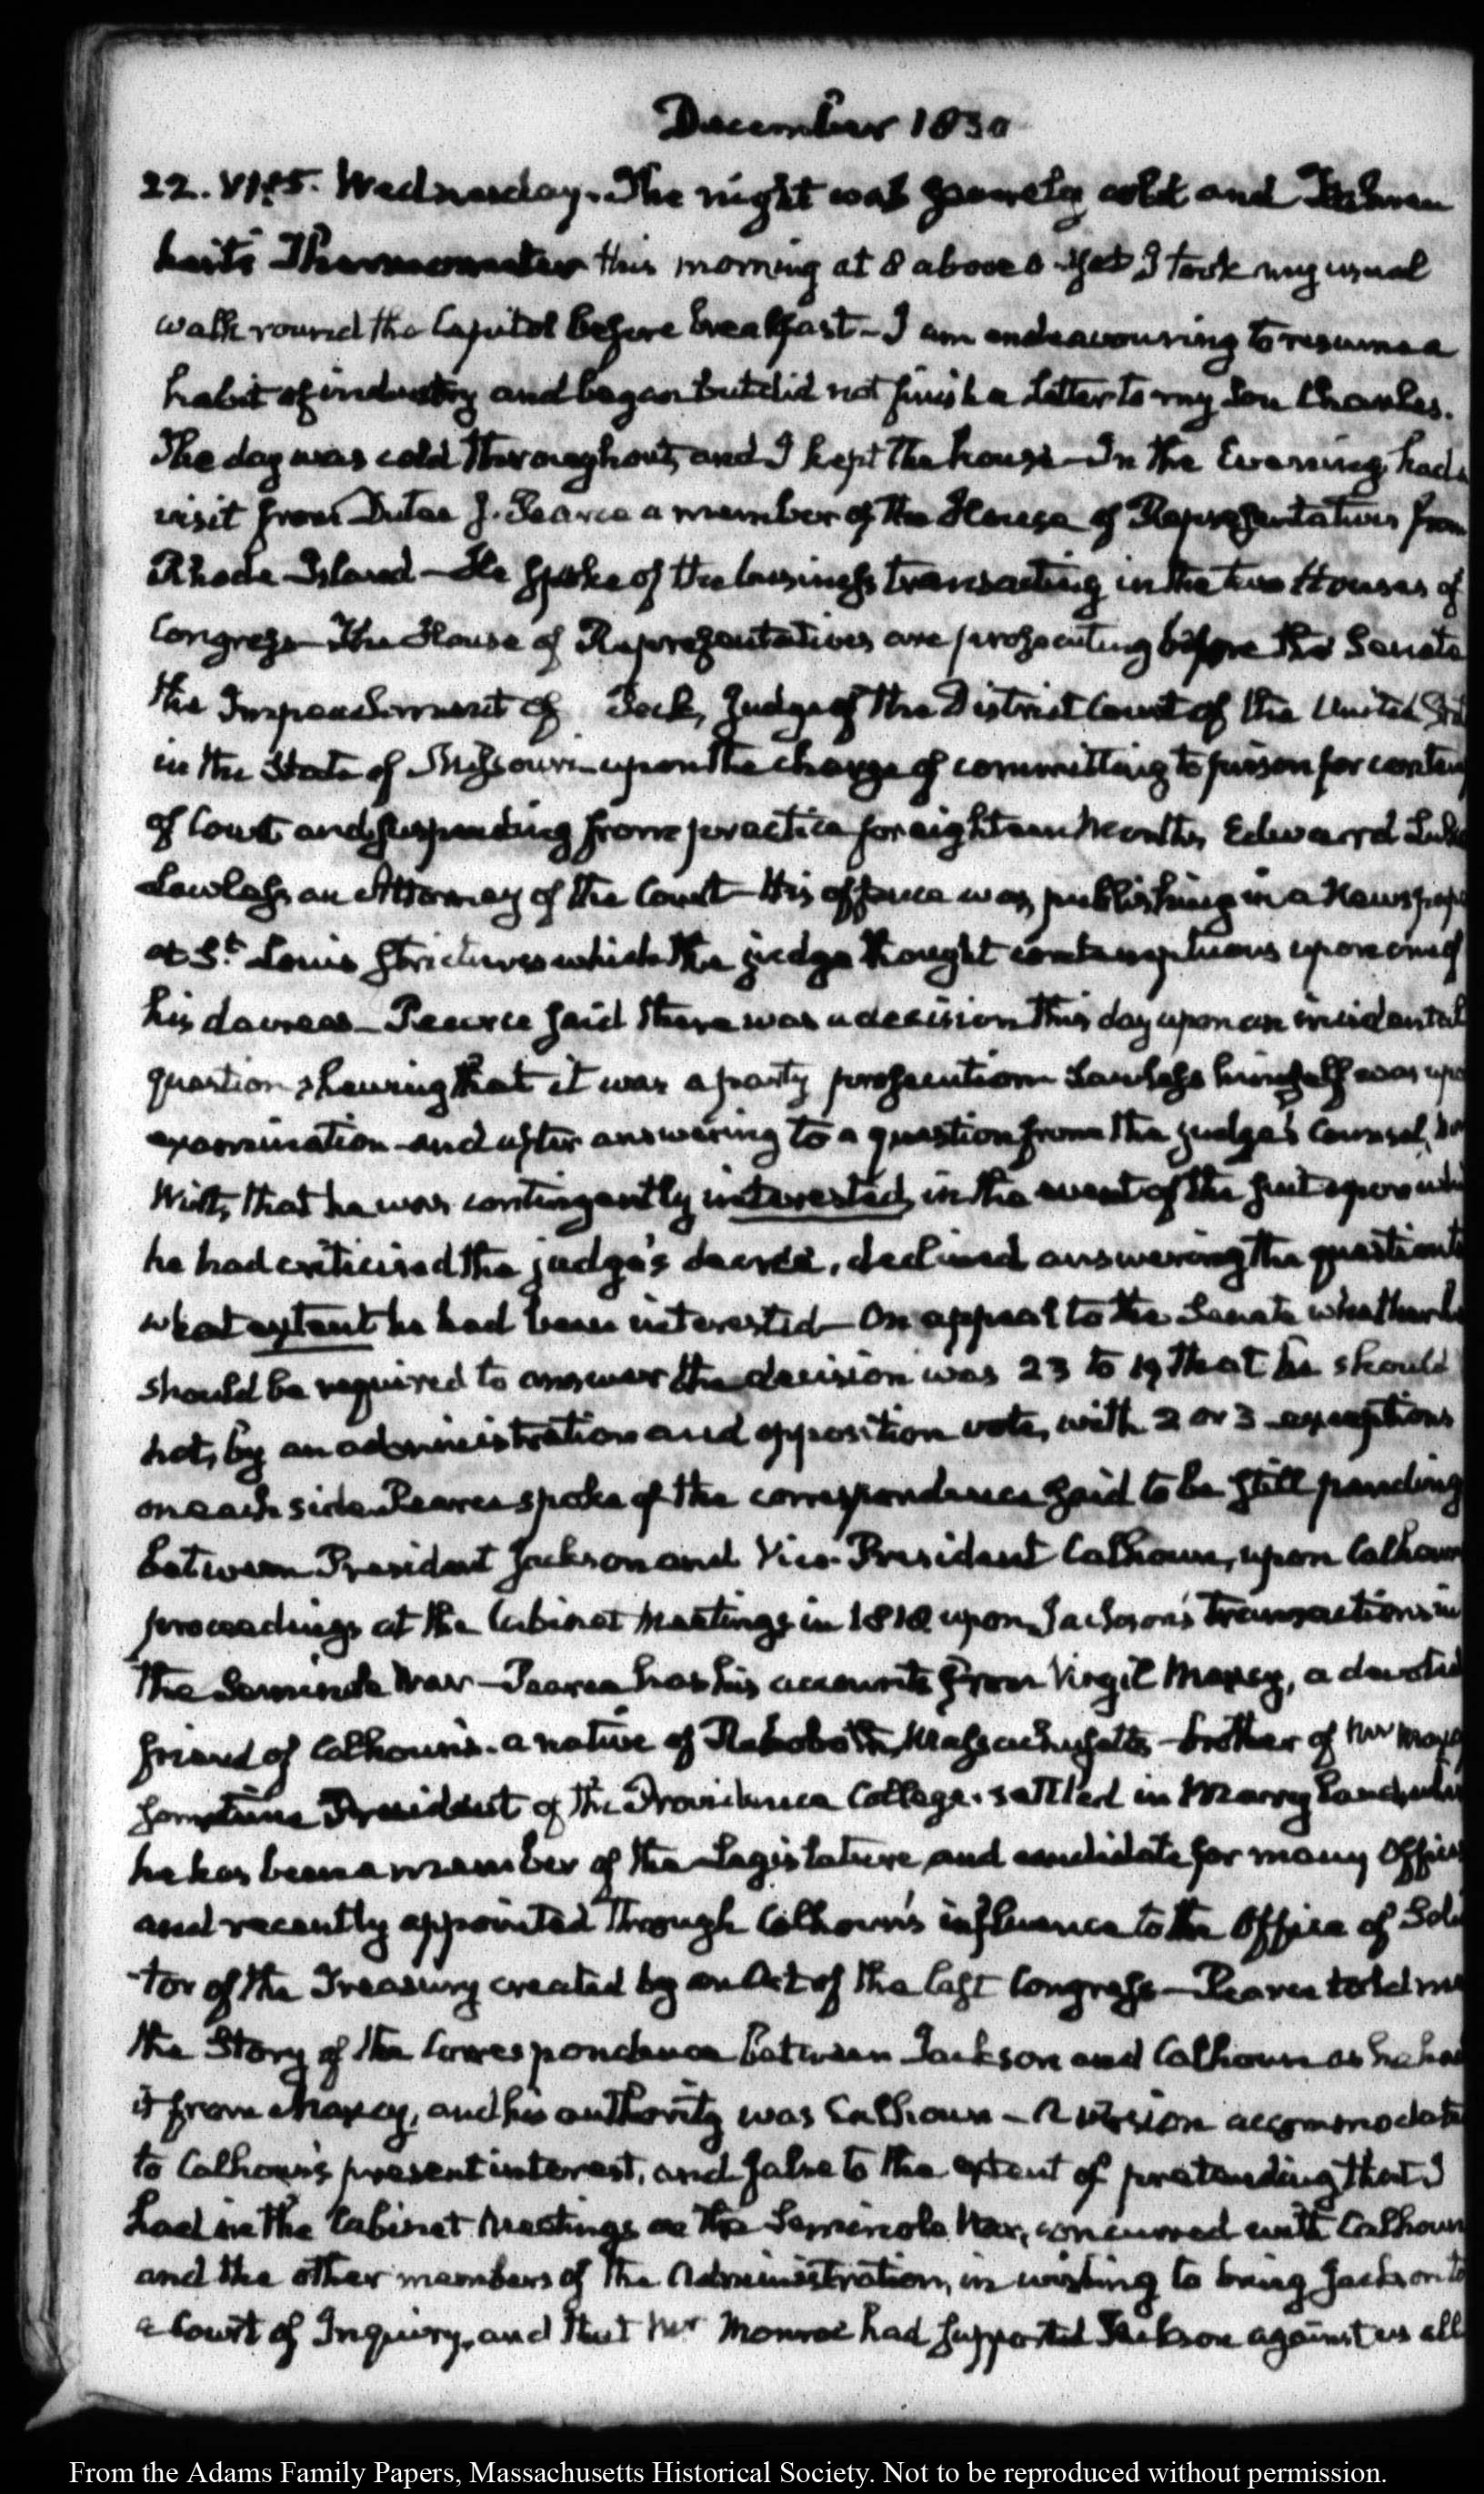 December 1830
22. VI:15. Wednesday. The night was severely cold and Fahren
heit's Thermometer this morning at 8 above 0. Yet I took my usual
walk round the Capitol before breakfast – I am endeavouring to resume a
habit of industry and began but did not finish a Letter to my Son Charles.
The day was cold throughout, and I kept the house – In the Evening, had a
visit from Dutee J. Pearce a member of the House of Representatives from
Rhode Island – He spoke of the business transacting in the two Houses of
Congress – The House of Representatives are prosecuting before the Senate
the Impeachment of Peck, Judge of the District Court of the United St
in the State of Missouri – upon the charge of committing to prison for contem
of Court and suspending from practice for eighteen Months, Edward Luke
Lawless an Attorney of the Court – His offence was publishing in a Newspape
at St. Louis strictures which the judge thought contemptuous upon one of
his decrees – Pearce said there was a decision this day upon an incidental
question shewing that it was a party prosecution – Lawless himself was upo
examination – and after answering to a question from the judge's Counsel,
Wirt, that he was contingently interested, in the event of the suit upon whi
he had criticised the judge's decree, declined answering the question to
what extent he had been interested – On appeal to the Senate whether he
should be required to answer the decision was 23 to 19 that he should
not, by an administration and opposition vote, with 2 or 3 exceptions
on each side. Pearce spoke of the correspondence said to be still pending
between President Jackson and Vice-President Calhoun, upon Calhoun
proceedings at the Cabinet Meetings in 1818 upon Jackson's transactions in
the Seminole War – Pearce has his accounts from Virgil Maxcy, a devoted
friend of Calhoun's. a native of Rehoboth, Massachusetts – brother of Mr Maxcy
sometime President of the Providence College. settled in Maryland, whe
he has been a member of the Legislature, and candidate for many Offices
and recently appointed through Calhoun's influence to the Office of Soli
tor of the Treasury created by an Act of the last Congress – Pearce told me
the Story of the Correspondence between Jackson and Calhoun as he had
it from Maxcy, and his authority was Calhoun – A version accommodate
to Calhoun's present interest, and false to the extent of pretending that I
had in the Cabinet Meetings on the Seminole War, concurred with Calhoun
and the other members of the Administration, in wishing to bring Jackson to
a Court of Inquiry, and that Mr Monroe had supported Jackson against us all
From the Adams Family Papers, Massachusetts Historical Society. Not to be reproduced without permission.